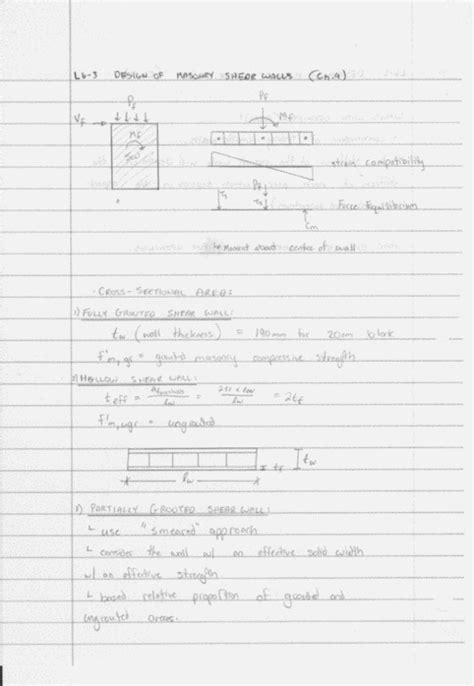 L6-3 DESIGN OF MASONRY SHEAR WALLS (Ch.9)
Pf
Pf
Vf
Mf
Mf
strain compatibility
Pf
Force Equilibrium
Cm
Moment about centre of wall
CROSS-SECTIONAL AREA:
1) FULLY GROUTED SHEAR WALL:
tw (wall thickness) = 190mm for 20cm block
f'm,gr = grouted masonry compressive strength
HOLLOW SHEAR WALL:
teff = = = 2tf
lw lw
f'm,ugr = ungrouted
tw
tf
lw
PARTIALLY GROUTED SHEAR WALL:
use "smeared" approach
consider the wall w/ an effective solid width
w/ an effective strength
based relative proportion of grouted and
ungrouted areas.